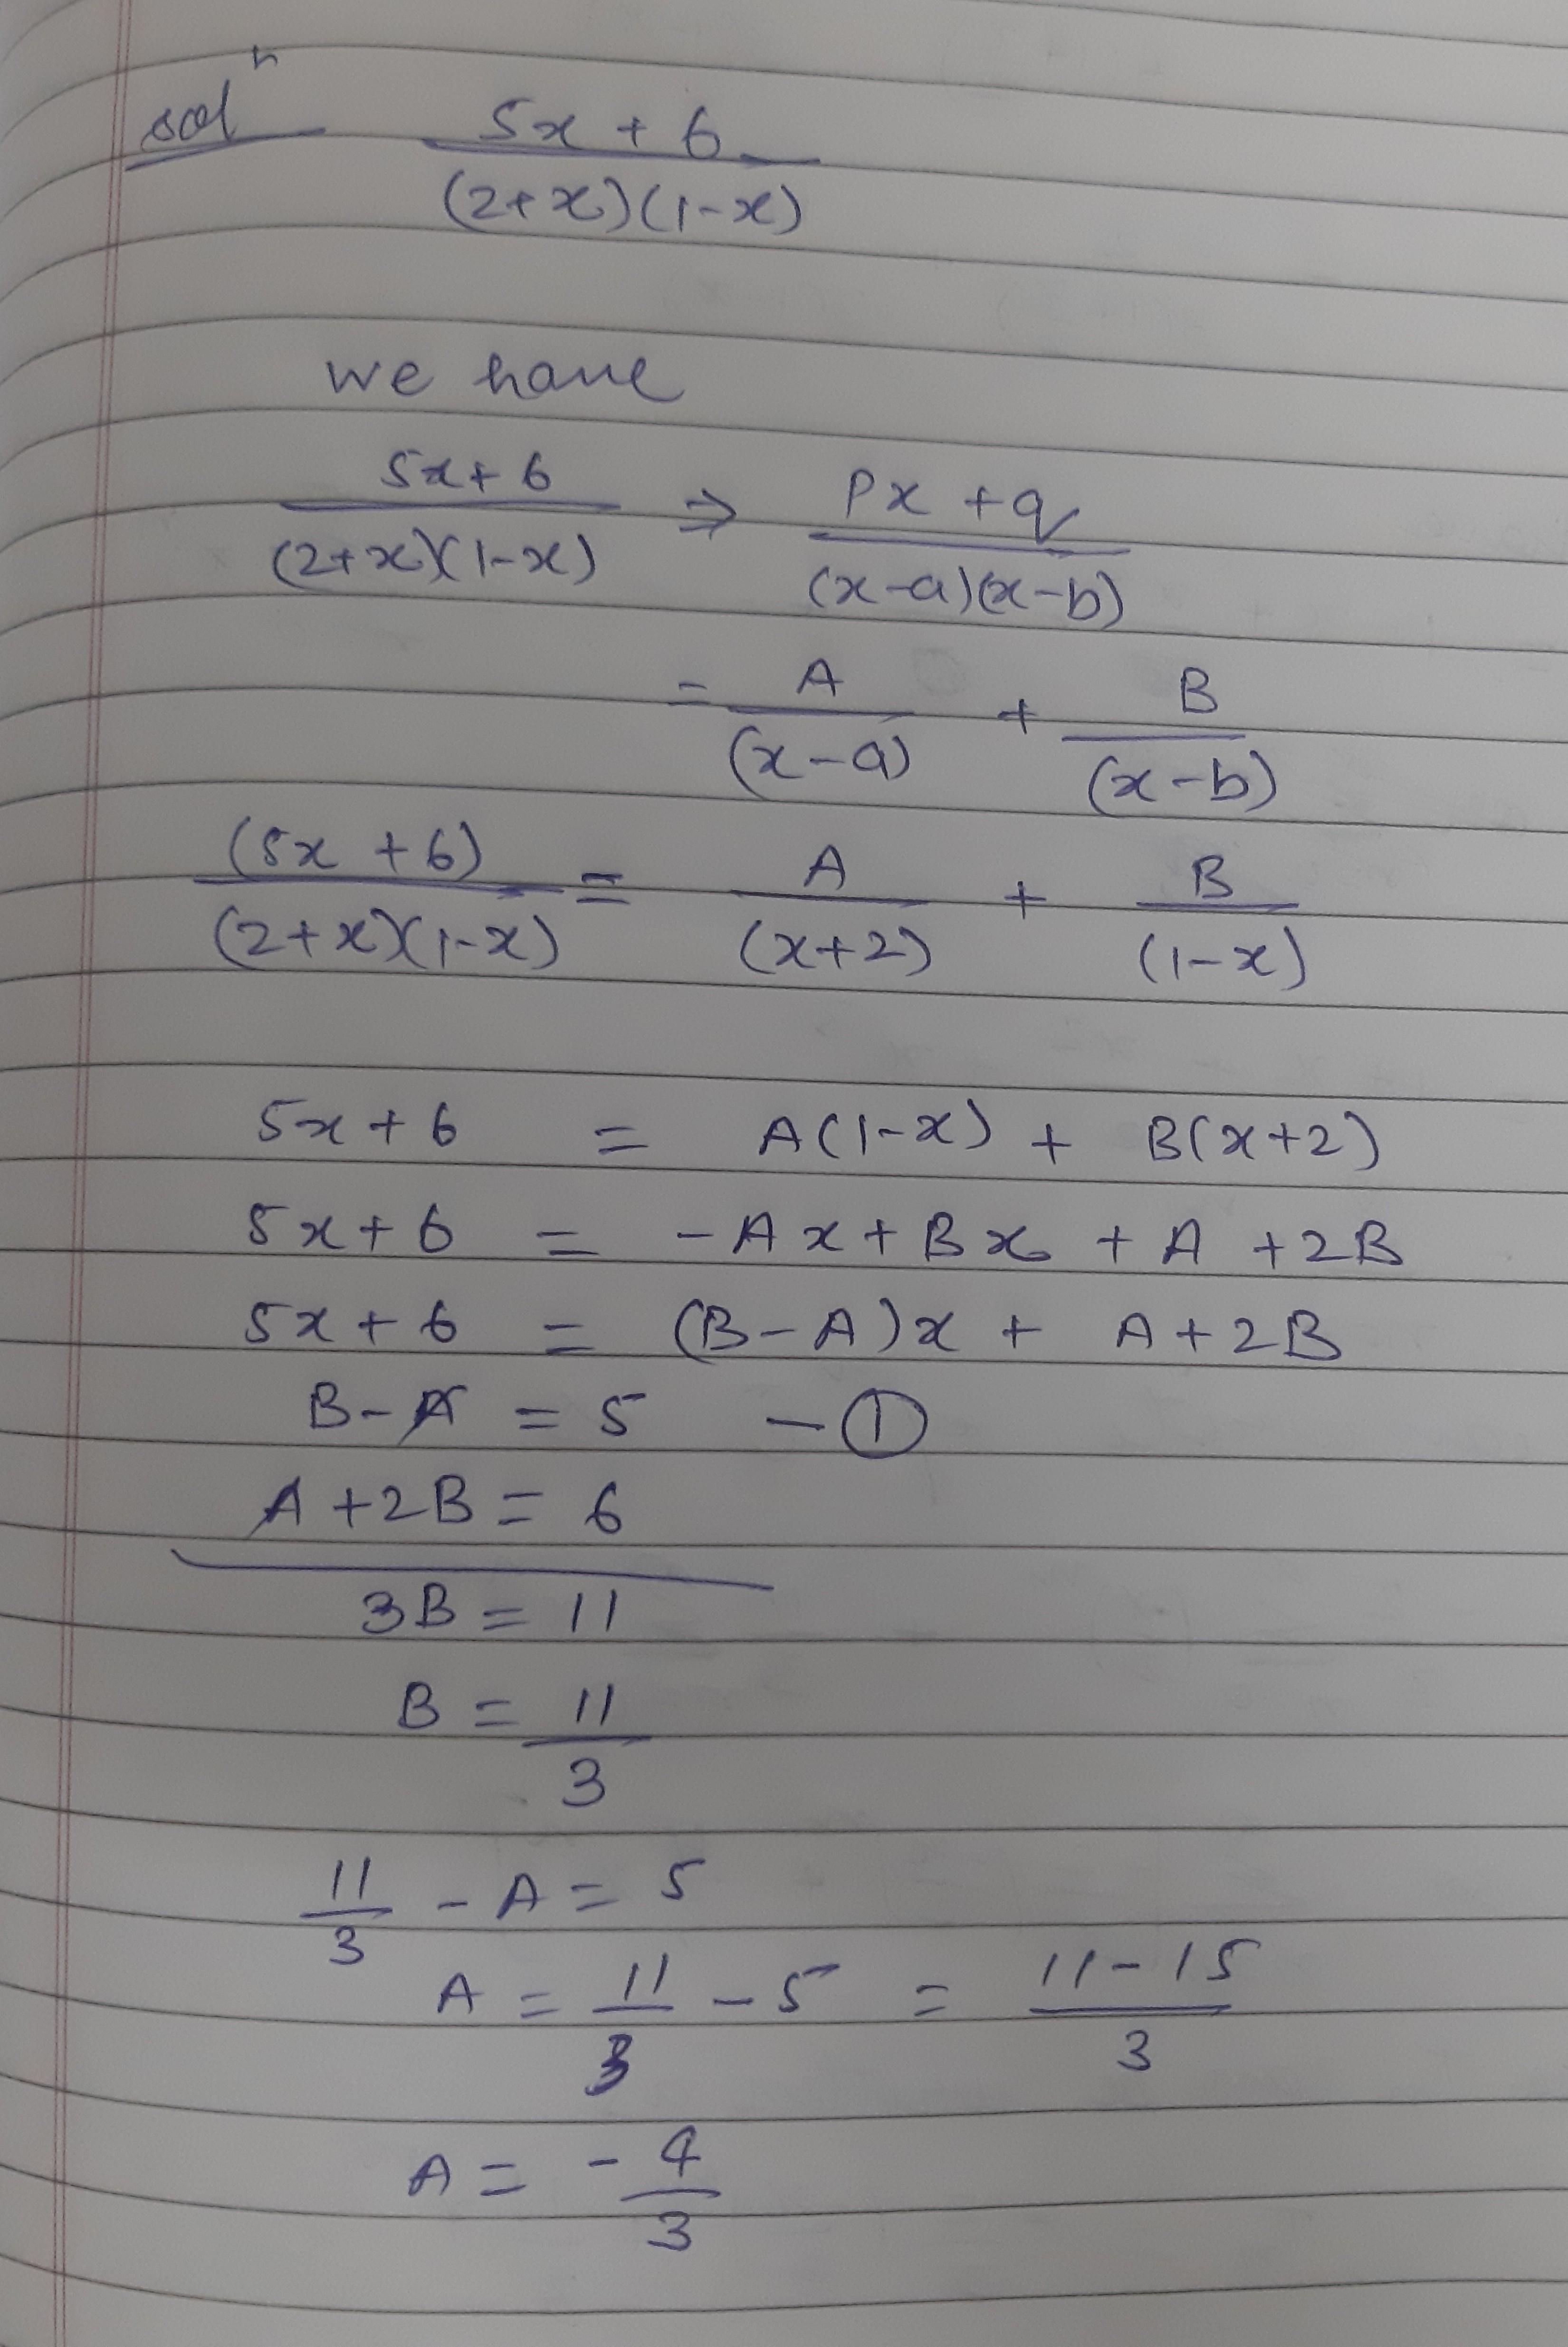 solⁿ (5x + 6)/((2+x)(1-x))
we have
(5x+6)/((2+x)(1-x)) ⇒ (Px + q)/((x-a)(x-b))
= A/(x-a) + B/(x-b)
(5x + 6)/((2+x)(1-x)) = A/(x+2) + B/(1-x)
5x + 6 = A(1-x) + B(x+2)
5x + 6 = -Ax + Bx + A + 2B
5x + 6 = (B-A)x + A + 2B
B - A = 5 - ①
A + 2B = 6
3B = 11
B = 11/3
11/3 - A = 5
A = 11/3 - 5 = (11-15)/3
A = -4/3